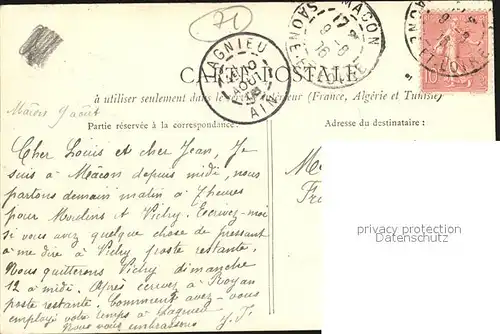 71
MACON
SAONE-ET-LOIRE
LAGNIEU
AIN
CARTE POSTALE
à utiliser seulement dans le (France, Algérie et Tunisie)
Mâcon 9 août
Partie réservée à la correspondance.
Adresse du destinataire:
Cher Louis et cher Jean, Je
suis à Mâcon depuis midi, nous
partons demain matin à 7 heures
pour Moulins et Vichy. Ecrivez-moi
si vous avez quelque chose de pressant
à me dire à Vichy poste restante.
Nous quitterons Vichy dimanche
12 à midi. Après écrivez à Royan
poste restante. Comment avez-vous
employé votre temps à Lagnieu
Nous vous embrassons
privacy protection
Datenschutz